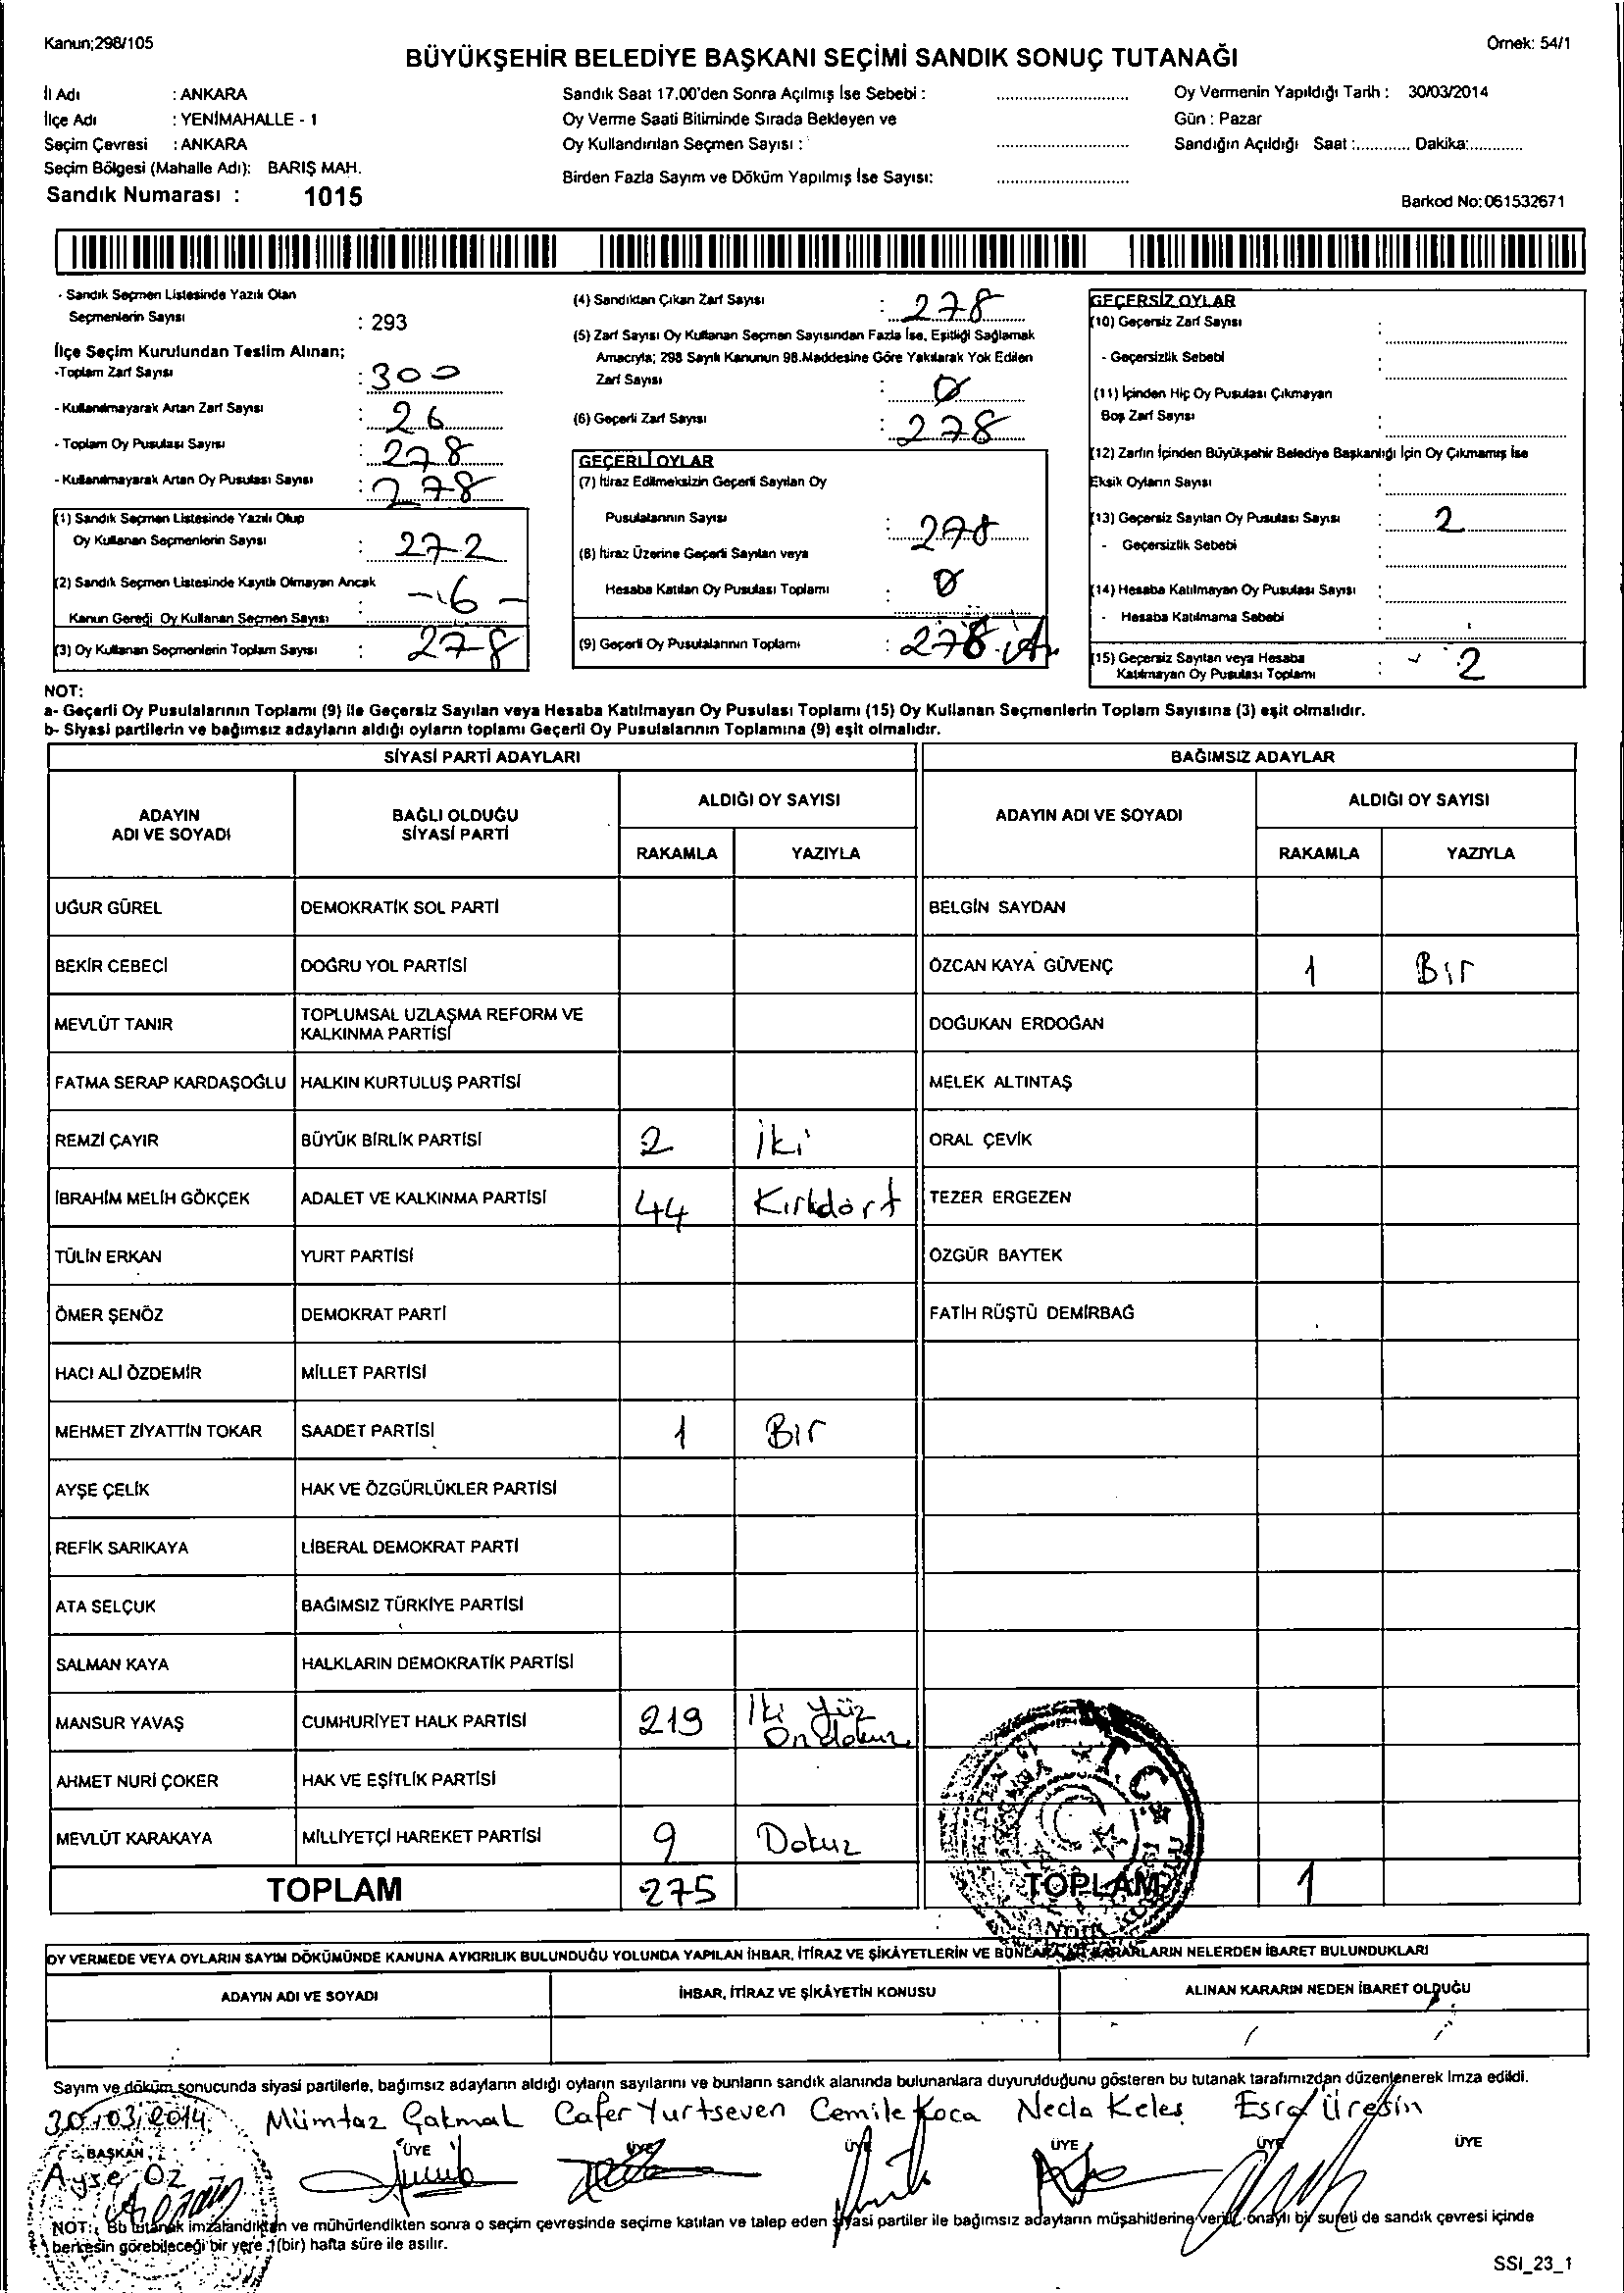 Kanun;298/105
Örnek: 54/1
BÜYÜKŞEHİR BELEDİYE BAŞKANI SEÇİMİ SANDIK SONUÇ TUTANAĞI
İl Adı : ANKARA
İlçe Adı : YENİMAHALLE - 1
Seçim Çevresi : ANKARA
Seçim Bölgesi (Mahalle Adı): BARIŞ MAH.
Sandık Numarası : 1015
Sandık Saat 17.00'den Sonra Açılmış İse Sebebi :
Oy Verme Saati Bitiminde Sırada Bekleyen ve
Oy Kullandırılan Seçmen Sayısı :
Birden Fazla Sayım ve Döküm Yapılmış İse Sayısı:
Oy Vermenin Yapıldığı Tarih : 30/03/2014
Gün : Pazar
Sandığın Açıldığı Saat :............ Dakika:............
Barkod No:061532671
- Sandık Seçmen Listesinde Yazılı Olan
Seçmenlerin Sayısı : 293
İlçe Seçim Kurulundan Teslim Alınan;
-Toplam Zarf Sayısı : 300
- Kullanılmayarak Artan Zarf Sayısı : 26
- Toplam Oy Pusulası Sayısı : 278
- Kullanılmayarak Artan Oy Pusulası Sayısı : 278
(1) Sandık Seçmen Listesinde Yazılı Olup
Oy Kullanan Seçmenlerin Sayısı : 272
(2) Sandık Seçmen Listesinde Kayıtlı Olmayan Ancak
Kanun Gereği Oy Kullanan Seçmen Sayısı : -6-
(3) Oy Kullanan Seçmenlerin Toplam Sayısı : 278
(4) Sandıktan Çıkan Zarf Sayısı : 278
(5) Zarf Sayısı Oy Kullanan Seçmen Sayısından Fazla İse, Eşitliği Sağlamak
Amacıyla; 298 Sayılı Kanunun 98.Maddesine Göre Yakılarak Yok Edilen
Zarf Sayısı : 0
(6) Geçerli Zarf Sayısı : 278
GEÇERLİ OYLAR
(7) İtiraz Edilmeksizin Geçerli Sayılan Oy
Pusulalarının Sayısı : 278
(8) İtiraz Üzerine Geçerli Sayılan veya
Hesaba Katılan Oy Pusulası Toplamı : 0
(9) Geçerli Oy Pusulalarının Toplamı : 276
GEÇERSİZ OYLAR
(10) Geçersiz Zarf Sayısı :
- Geçersizlik Sebebi :
(11) İçinden Hiç Oy Pusulası Çıkmayan
Boş Zarf Sayısı :
(12) Zarfın İçinden Büyükşehir Belediye Başkanlığı İçin Oy Çıkmamış İse
Eksik Oyların Sayısı :
(13) Geçersiz Sayılan Oy Pusulası Sayısı : 2
- Geçersizlik Sebebi :
(14) Hesaba Katılmayan Oy Pusulası Sayısı :
- Hesaba Katılmama Sebebi :
(15) Geçersiz Sayılan veya Hesaba
Katılmayan Oy Pusulası Toplamı : 2
NOT:
a- Geçerli Oy Pusulalarının Toplamı (9) ile Geçersiz Sayılan veya Hesaba Katılmayan Oy Pusulası Toplamı (15) Oy Kullanan Seçmenlerin Toplam Sayısına (3) eşit olmalıdır.
b- Siyasi partilerin ve bağımsız adayların aldığı oyların toplamı Geçerli Oy Pusulalarının Toplamına (9) eşit olmalıdır.
SİYASİ PARTİ ADAYLARI
ADAYIN ADI VE SOYADI
BAĞLI OLDUĞU SİYASİ PARTİ
ALDIĞI OY SAYISI
RAKAMLA YAZIYLA
UĞUR GÜREL DEMOKRATİK SOL PARTİ
BEKİR CEBECİ DOĞRU YOL PARTİSİ
MEVLÜT TANIR TOPLUMSAL UZLAŞMA REFORM VE
KALKINMA PARTİSİ
FATMA SERAP KARDAŞOĞLU HALKIN KURTULUŞ PARTİSİ
REMZİ ÇAYIR BÜYÜK BİRLİK PARTİSİ 2 İki
İBRAHİM MELİH GÖKÇEK ADALET VE KALKINMA PARTİSİ 44 Kırkdört
TÜLİN ERKAN YURT PARTİSİ
ÖMER ŞENÖZ DEMOKRAT PARTİ
HACI ALİ ÖZDEMİR MİLLET PARTİSİ
MEHMET ZİYATTİN TOKAR SAADET PARTİSİ 1 Bir
AYŞE ÇELİK HAK VE ÖZGÜRLÜKLER PARTİSİ
REFİK SARIKAYA LİBERAL DEMOKRAT PARTİ
ATA SELÇUK BAĞIMSIZ TÜRKİYE PARTİSİ
SALMAN KAYA HALKLARIN DEMOKRATİK PARTİSİ
MANSUR YAVAŞ CUMHURİYET HALK PARTİSİ 219 İki Yüz
Ondokuz
AHMET NURİ ÇOKER HAK VE EŞİTLİK PARTİSİ
MEVLÜT KARAKAYA MİLLİYETÇİ HAREKET PARTİSİ 9 Dokuz
TOPLAM 275
BAĞIMSIZ ADAYLAR
ADAYIN ADI VE SOYADI
ALDIĞI OY SAYISI
RAKAMLA YAZIYLA
BELGİN SAYDAN
ÖZCAN KAYA GÜVENÇ 1 Bir
DOĞUKAN ERDOĞAN
MELEK ALTINTAŞ
ORAL ÇEVİK
TEZER ERGEZEN
ÖZGÜR BAYTEK
FATİH RÜŞTÜ DEMİRBAĞ
T.C.
TOPLAM 1
OY VERMEDE VEYA OYLARIN SAYIM DÖKÜMÜNDE KANUNA AYKIRILIK BULUNDUĞU YOLUNDA YAPILAN İHBAR, İTİRAZ VE ŞİKÂYETLERİN VE BUNLARA KARARLARIN NELERDEN İBARET BULUNDUKLARI
ADAYIN ADI VE SOYADI
İHBAR, İTİRAZ VE ŞİKÂYETİN KONUSU
ALINAN KARARIN NEDEN İBARET OLDUĞU
Sayım ve döküm sonucunda siyasi partilerle, bağımsız adayların aldığı oyların sayılarını ve bunların sandık alanında bulunanlara duyurulduğunu gösteren bu tutanak tarafımızdan düzenlenerek imza edildi.
30/03/2014 Mümtaz Çakmak Cafer Yurtseven Cemile Koca Necla Keleş Esra Üresin
BAŞKAN ÜYE ÜYE ÜYE ÜYE ÜYE ÜYE
Ayşe Öz
NOT: Bu tutanak imzalandıktan ve mühürlendikten sonra o seçim çevresinde seçime katılan ve talep eden siyasi partiler ile bağımsız adayların müşahitlerine verilir, onaylı bir sureti de sandık çevresi içinde
herkesin görebileceği bir yere 1(bir) hafta süre ile asılır.
SSI_23_1